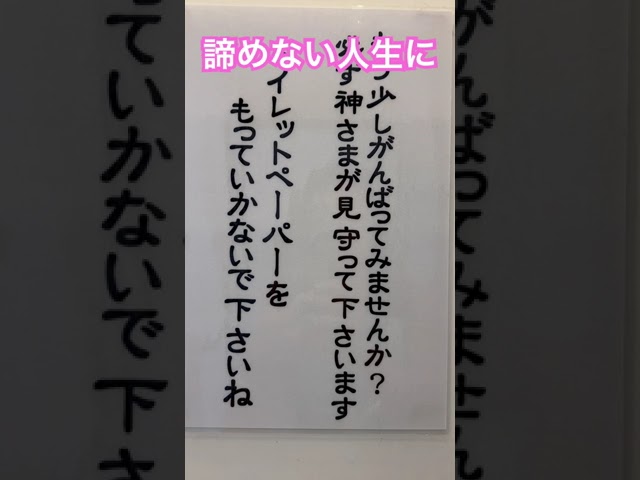 諦めない人生に
もう少しがんばってみませんか？
必ず神さまが見守って下さいます
トイレットペーパーを
もっていかないで下さいね